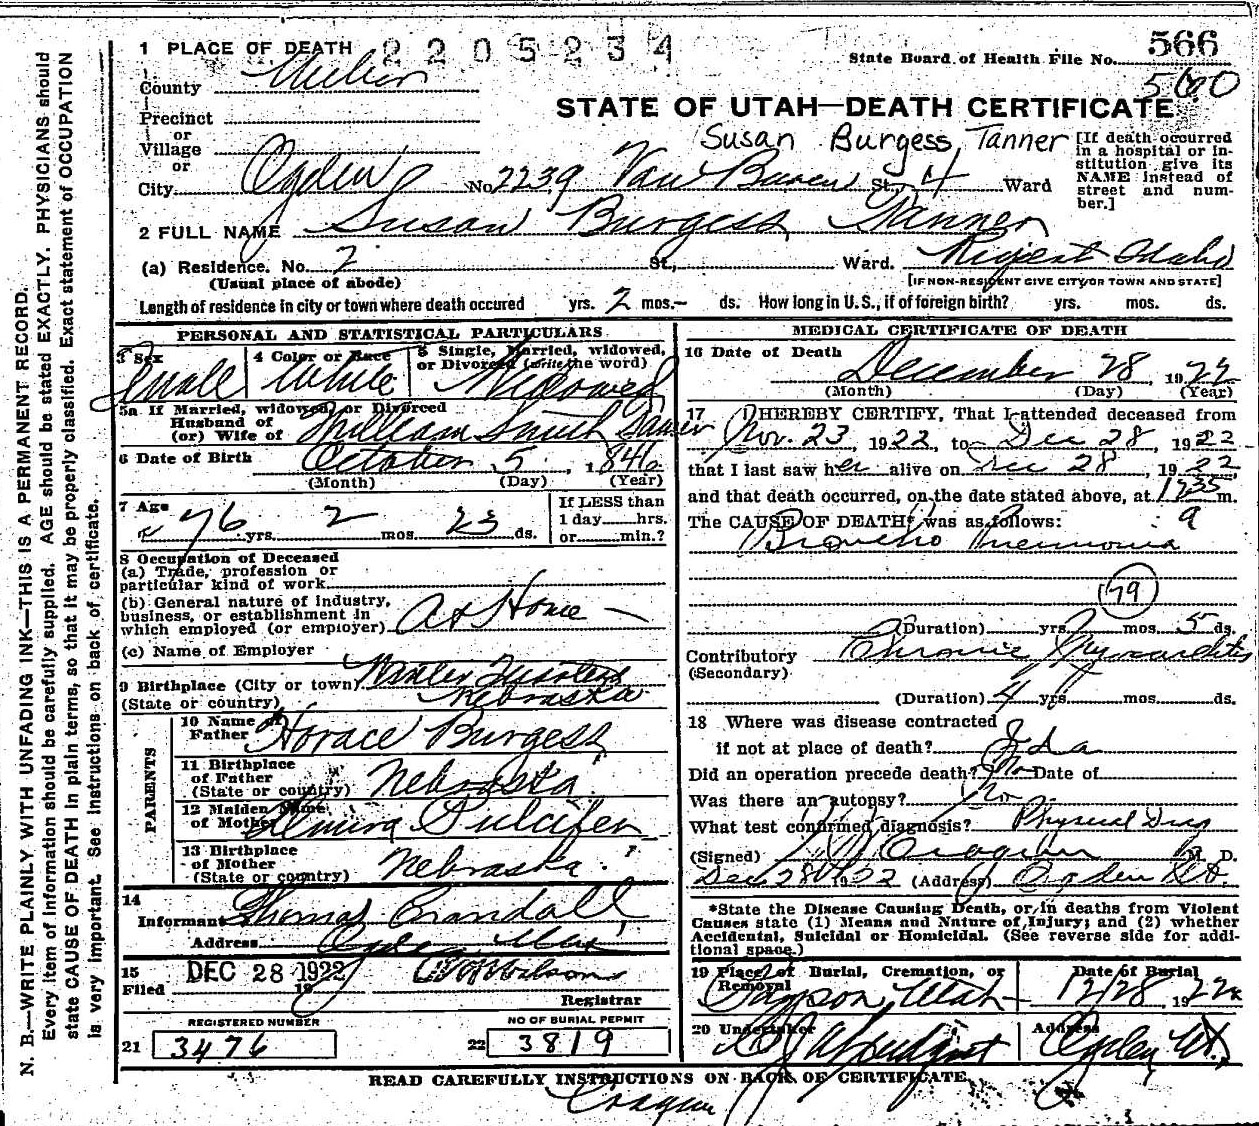 1 PLACE OF DEATH 2205234
State Board of Health File No. 566
County Weber 560
STATE OF UTAH—DEATH CERTIFICATE
Precinct
or
Village
or
Susan Burgess Tanner
[If death occurred in a hospital or institution give its NAME instead of street and number.]
City Ogden No. 2239 Van Buren St., 4 Ward
2 FULL NAME Susan Burgess Tanner
(a) Residence. No. 2 St., Ward. Idaho
(Usual place of abode) [IF NON-RESIDENT GIVE CITY OR TOWN AND STATE]
Length of residence in city or town where death occured yrs. 2 mos. – ds. How long in U.S., if of foreign birth? yrs. mos. ds.
PERSONAL AND STATISTICAL PARTICULARS
3 Sex 4 Color or Race 5 Single, Married, widowed, or Divorced (write the word)
Female White Widowed
5a If Married, widowed, or Divorced
Husband of
(or) Wife of William Smith Tanner
6 Date of Birth October 5, 1846
(Month) (Day) (Year)
7 Age 76 yrs. 2 mos. 23 ds.
If LESS than
1 day hrs.
or min.?
8 Occupation of Deceased
(a) Trade, profession or
particular kind of work
(b) General nature of industry,
business, or establishment in
which employed (or employer) At Home –
(c) Name of Employer
9 Birthplace (City or town) Winter Quarters
(State or country) Nebraska
PARENTS
10 Name of
Father Horace Burgess
11 Birthplace
of Father
(State or country) Nebraska
12 Maiden Name
of Mother Almira Pulcifer
13 Birthplace
of Mother
(State or country) Nebraska ?
14
Informant Thomas Crandall
Address Ogden Utah
15
Filed DEC 28 1922 19
Registrar
REGISTERED NUMBER NO OF BURIAL PERMIT
21 3476 22 3819
MEDICAL CERTIFICATE OF DEATH
16 Date of Death December 28, 1922
(Month) (Day) (Year)
17 I HEREBY CERTIFY, That I attended deceased from
Nov. 23, 1922, to Dec 28, 1922
that I last saw her alive on Dec 28, 1922,
and that death occurred, on the date stated above, at 1235 m.
The CAUSE OF DEATH* was as follows: a
Broncho Pneumonia
(79)
(Duration) yrs. mos. 5 ds.
Contributory Chronic Myocarditis
(Secondary)
(Duration) 4 yrs. mos. ds.
18 Where was disease contracted
if not at place of death? Ida
Did an operation precede death? No Date of
Was there an autopsy? No
What test confirmed diagnosis? Physical Diag
(Signed) M. D.
Dec 28th 1922 (Address) Ogden Ut.
*State the Disease Causing Death, or in deaths from Violent
Causes state (1) Means and Nature of Injury; and (2) whether
Accidental, Suicidal or Homicidal. (See reverse side for addi-
tional space.)
19 Place of Burial, Cremation, or Removal Date of Burial
Payson, Utah – 12/28, 1922
20 Undertaker Address
Ogden Ut.
READ CAREFULLY INSTRUCTIONS ON BACK OF CERTIFICATE
N. B.—WRITE PLAINLY WITH UNFADING INK—THIS IS A PERMANENT RECORD.
Every item of information should be carefully supplied. AGE should be stated EXACTLY. PHYSICIANS should
state CAUSE OF DEATH in plain terms, so that it may be properly classified. Exact statement of OCCUPATION
is very important. See instructions on back of certificate.